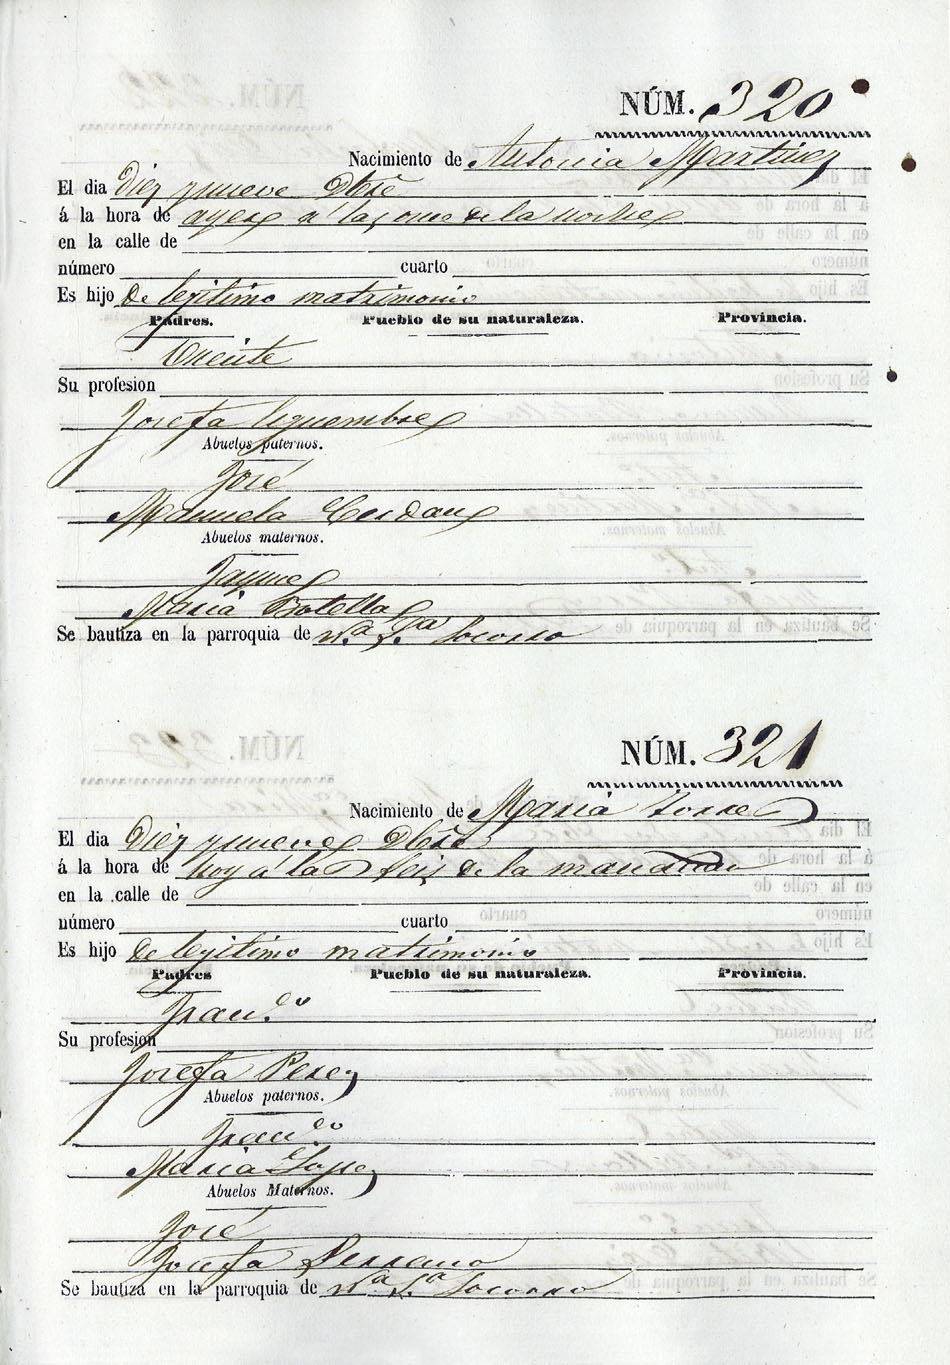 NÚM. 320
Nacimiento de Antonia Martinez
El dia Diez y nueve Dbre
á la hora de ayer á las once de la noche
en la calle de
número cuarto
Es hijo de legitimo matrimonio
Padres. Pueblo de su naturaleza. Provincia.
Vicente
Su profesion
Josefa
Abuelos paternos.
José
Manuela Cerdan
Abuelos maternos.
Jayme
Maria Botella
Se bautiza en la parroquia de Nª Sª Socorro
NÚM. 321
Nacimiento de Maria Torres
El dia Diez y nueve Dbre
á la hora de hoy á las seis de la mañana
en la calle de
número cuarto
Es hijo de legitimo matrimonio
Padres Pueblo de su naturaleza. Provincia.
Francº
Su profesion
Josefa Perez
Abuelos paternos.
Francº
Maria Lopez
Abuelos Maternos.
José
Josefa Serrano
Se bautiza en la parroquia de Nª Sª Socorro